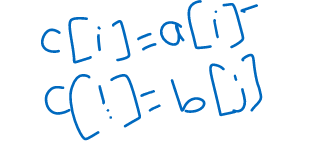 c[i]=a[i]-
c[!]=b[j]